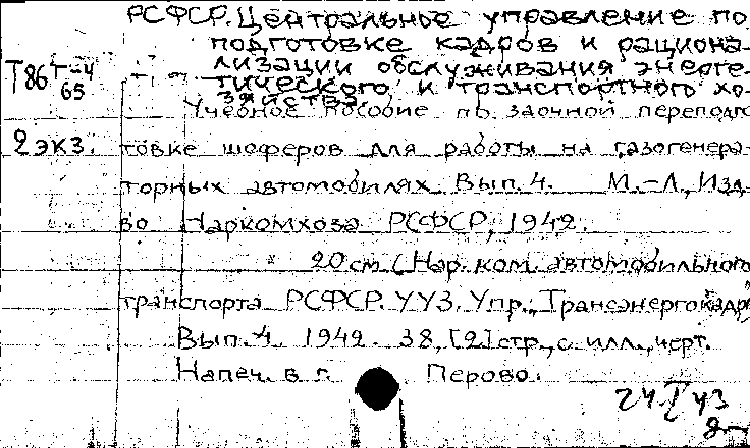 РСФСР. Центральное управление по
подготовке кадров и рациона-
лизации обслуживания энерге-
тического и транспортного хо-
зяйства.
Т86 Т-4
65
Учебное пособие по заочной переподго
2 экз. товке шоферов для работы на газогенера-
торных автомобилях. Вып. 4. М.-Л., Изд-
во Наркомхоза РСФСР, 1942.
20 см. (Нар. ком. автомобильного
транспорта РСФСР. УУЗ. Упр. "Трансэнергокадры
Вып. 4. 1942. 38, [2] стр., с илл., черт.
Напеч. в г. Перово.